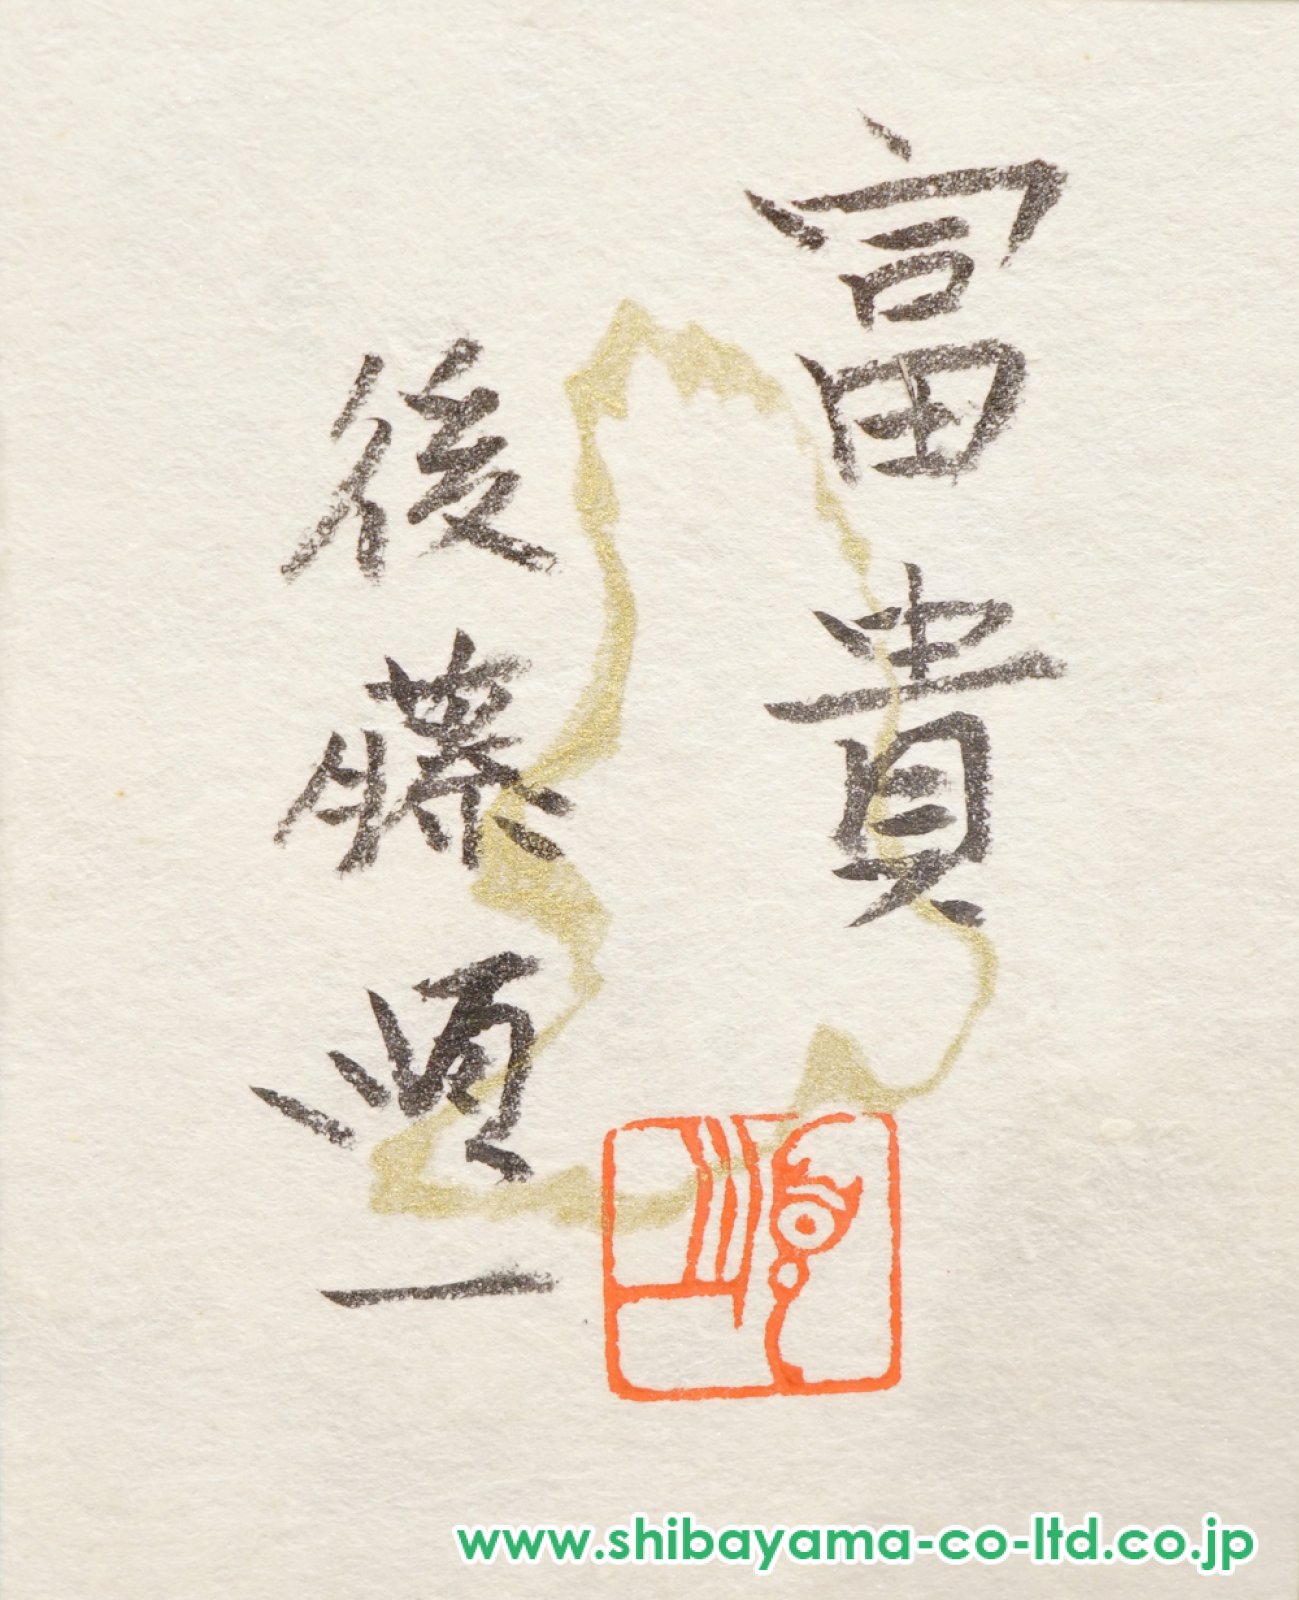 富貴
後藤順一
www.shibayama-co-ltd.co.jp